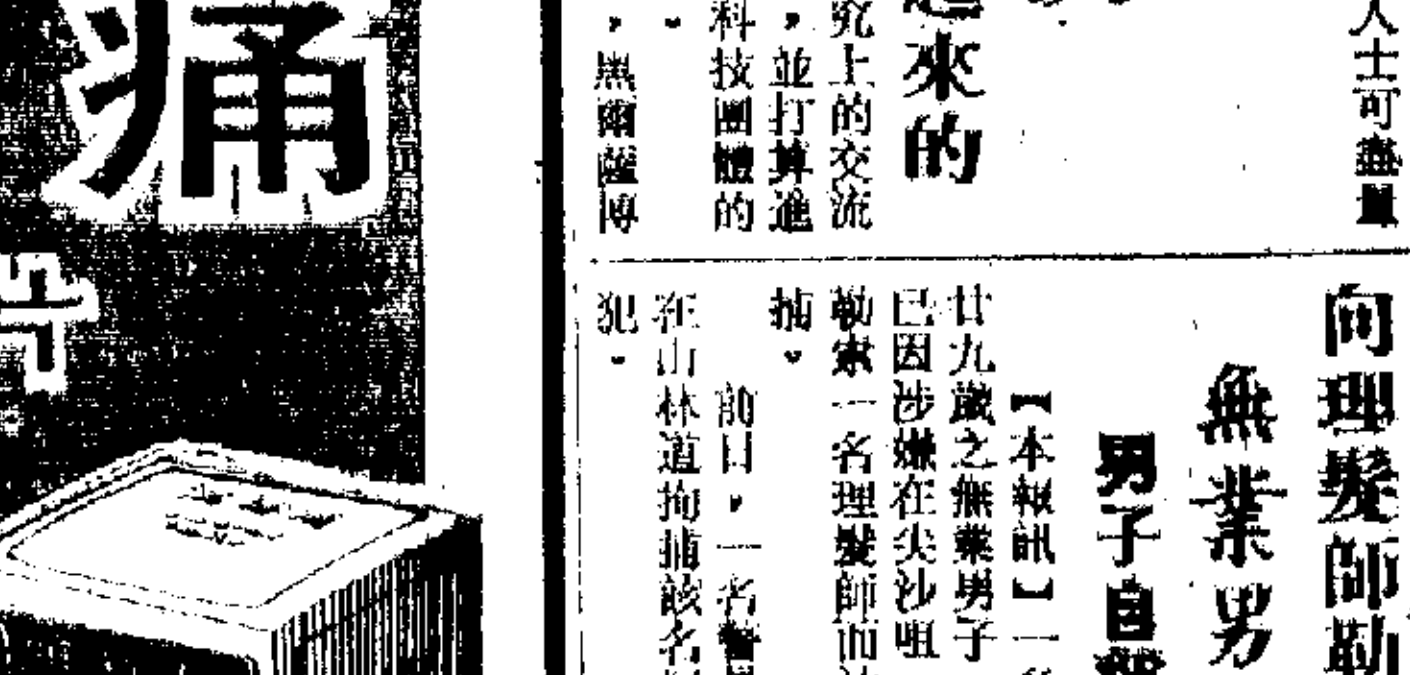 人士可
來的
究上的交流
，並打算進
科技團體的
，黑爾薩博
向理髮師勒
無業男
男子自
【本報訊】一
廿九歲之無業男子
已因涉嫌在尖沙咀
勒索一名理髮師而
捕。
前日，一名警
在山林道拘捕該名
犯。
痛